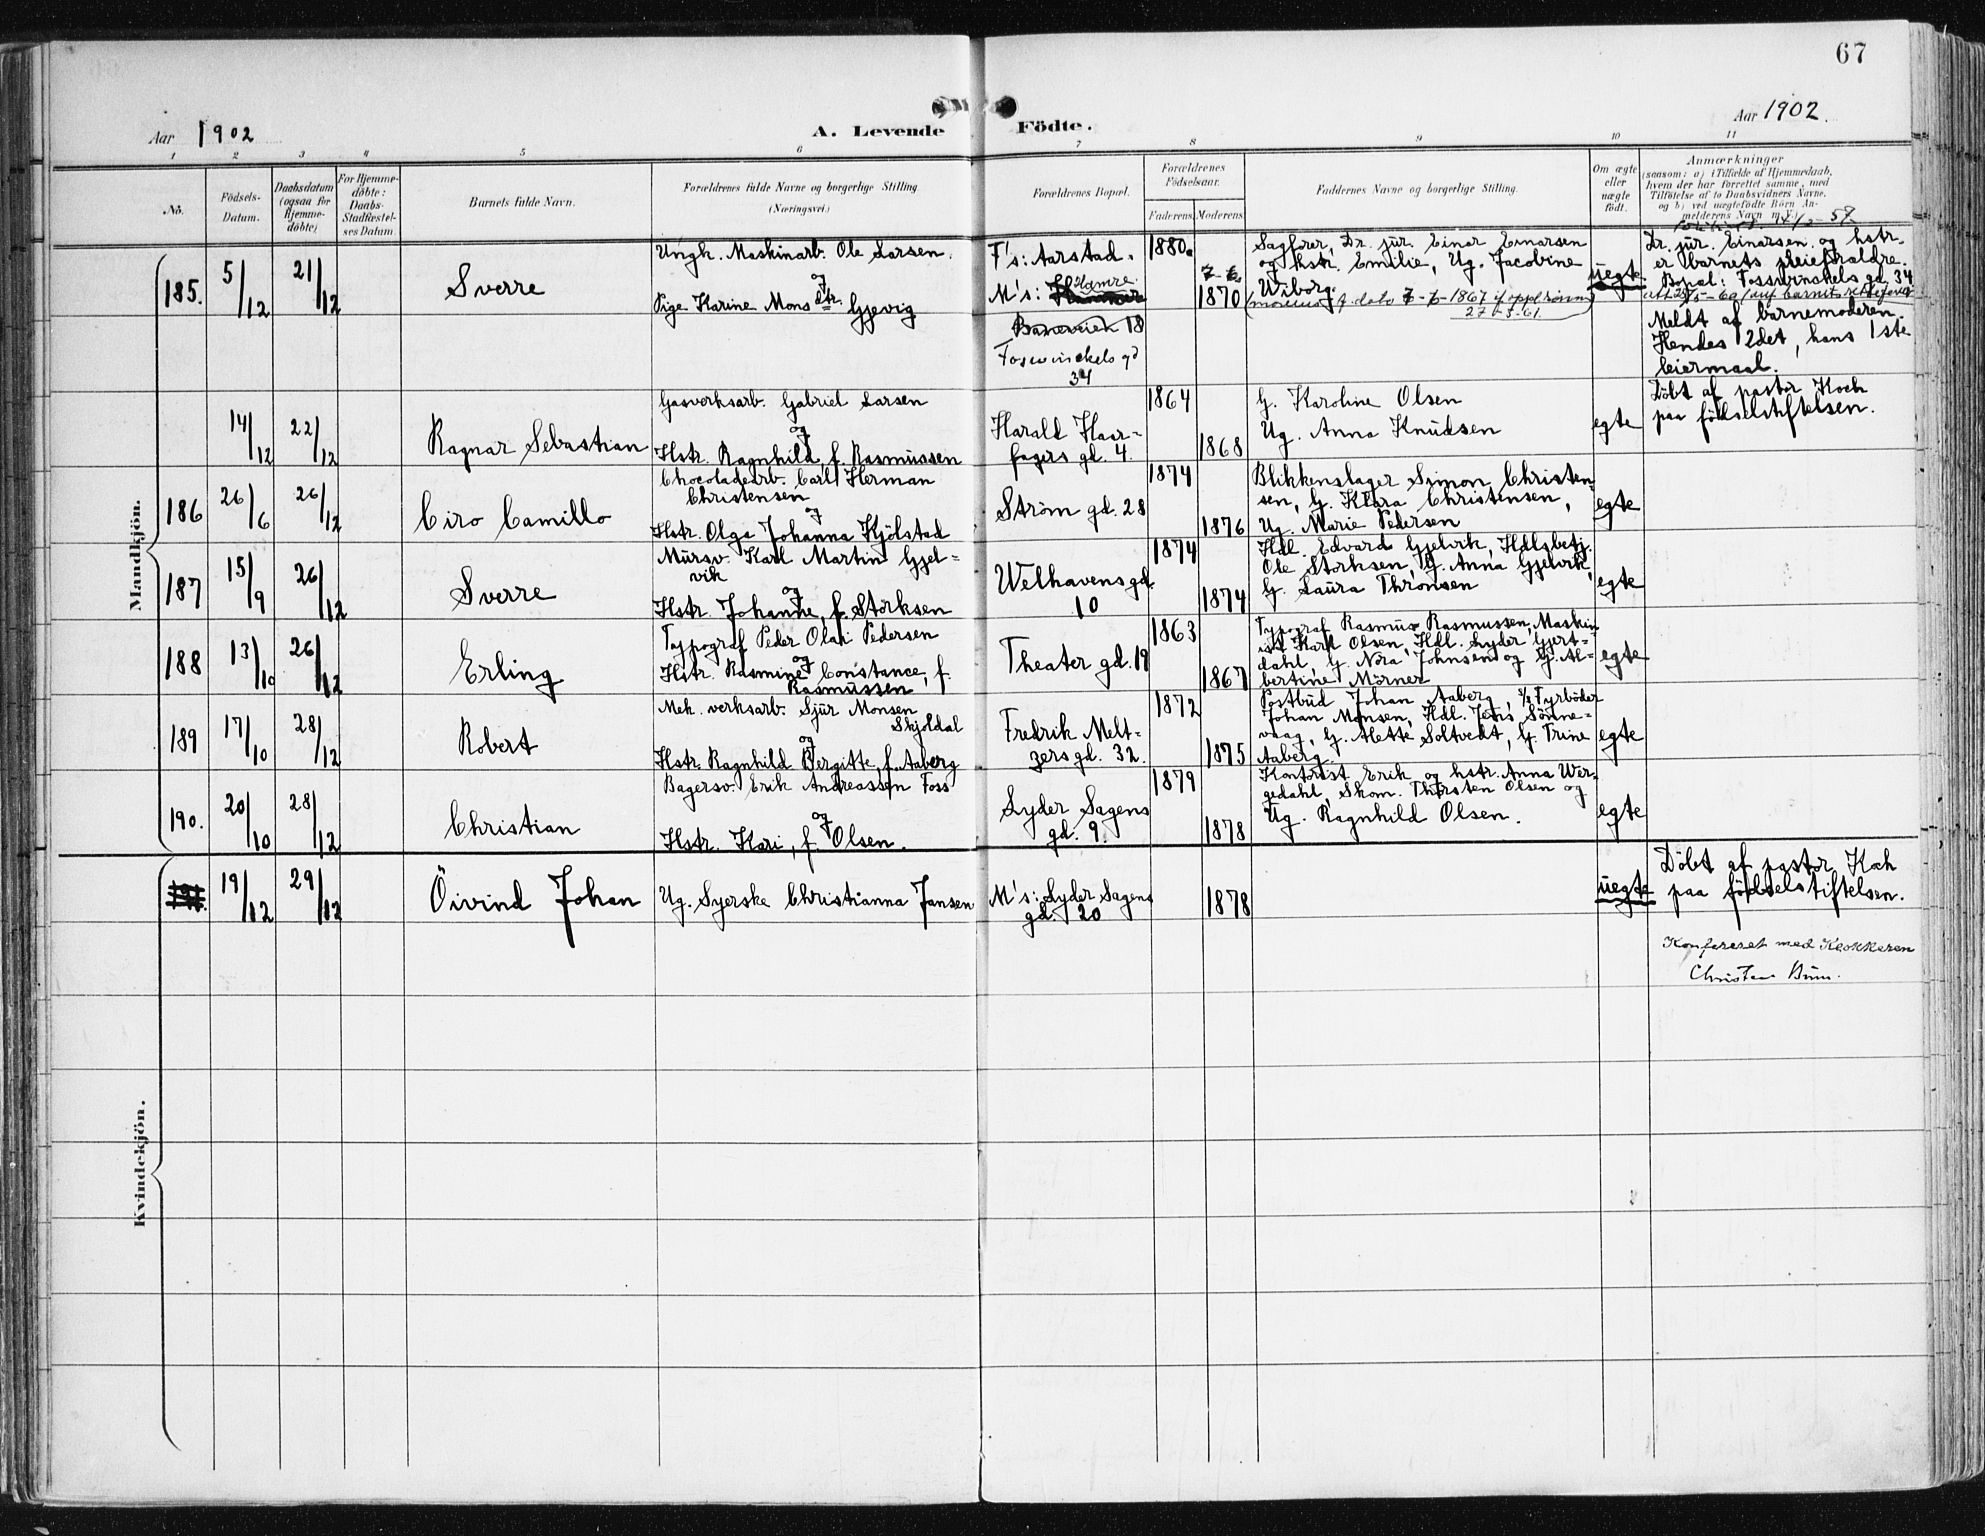 67
Aar 1902
A. Levende Födte.
Aar 1902.
1 2 3 4 5 6 7 8 9 10 11
No.
Födsels-
Datum.
Daabsdatum
(ogsaa for
Hjemme-
döbte)
For Hjemme-
döbte:
Daabs-
Stadfæstel-
ses Datum.
Barnets fulde Navn.
Forældrenes fulde Navne og borgerlige Stilling
(Næringsvei.)
Forældrenes Bopæl.
Forældrenes
Födselsaar.
Faderens Moderens
Faddernes Navne og borgerlige Stilling.
Om ægte
eller
uægte
född.
Anmærkninger
(saasom: a) i Tilfælde af Hjemmedaab,
hvem der har forrettet samme, med
Tilföielse af to Daabsvidners Navne,
og b) ved uægtefödte Börn An-
melderens Navn m. V.)
Mandkjön.
185.
5/12
21/12
Sverre
Ungk. Maskinarb. Ole Larsen.
og
Pige Karine Monsdtr. Gjevig
F's: Aarstad.
M's: Hamre
Baneveien 18
Foswinckels gd
34
1880.
1870
Sagförer, Dr. jur. Einar Einarsen
og hstr. Emilie, Ug. Jacobine
Wiborg.
27-5-61.
uegte
Dr. jur. Einarsen og hstr.
er barnets pleieforaldre.
Bopæl: Fosswinckels gd 34
Meldt af barnemoderen.
Hendes 2det, hans 1ste
leiermaal.
14/12
22/12
Ragnar Sebastian
Gasverksarb. Gabriel Larsen
og
Hstr. Ragnhild, f. Rasmussen
Harald Haar-
fagers gd. 4.
1864
1868
G. Karoline Olsen
Ug. Anna Knudsen
egte
Döbt af pastor Koch
paa födselstiftelsen.
186
26/6
26/12
Ciro Camillo
Chocoladearb. Carl Herman
Christensen
og
Hstr. Olga Johanna Kjölstad
Ström gd. 28
1874
1876
Blikkenslager Simon Christen-
sen, G. Klara Christensen,
Ug. Marie Pedersen
egte
187
15/9
26/12
Sverre
Mursv. Karl Martin Gjel-
vik
og
Hstr. Johanne, f. Störksen
Welhavens gd.
10
1874
1874
Hdl. Edvard Gjelvik, Hdlsbetj.
Ole Störksen, G. Anna Gjelvik,
G. Laura Thronsen
egte
188
13/10
26/12
Erling
Typograf Peder Olai Pedersen
og
Hstr. Rasmine Constance, f.
Rasmussen
Theater gd. 19
1863
1867
Typograf Rasmus Rasmussen, Maskin
ist Karl Olsen, Hdl. Lyder Gjert-
dahl, G. Nora Johnsen og G. Al-
bertine Mörner
egte
189
17/10
28/12
Robert
Mek. verksarb. Sjur Monsen
Skjoldal
og
Hstr. Ragnhild Bergitte, f. Aaberg
Fredrik Melt-
zers gd. 32.
1872
1875
Postbud Johan Aaberg, Fyrböder
Johan Monsen, Hdl. Jens Sönne-
vaag, G. Alette Soltvedt, G. Trine
Aaberg.
egte
190.
20/10
28/12
Christian
Bagersv. Erik Andreassen Foss
og
Hstr. Kari, f. Olsen.
Lyder Sagens
gd. 9.
1879
1878
Kontorist Erik og hstr. Anna Wer-
gedahl, Skom. Thorsten Olsen og
Ug. Ragnhild Olsen.
egte
191.
19/12
29/12
Öivind Johan
Ug. Syerske Christianna Jansen
M's: Lyder Sagens
gd. 20
1878
uegte
Döbt af pastor Koch
paa födselstiftelsen.
Konfereret med Klokkeren
Kvindekjön.